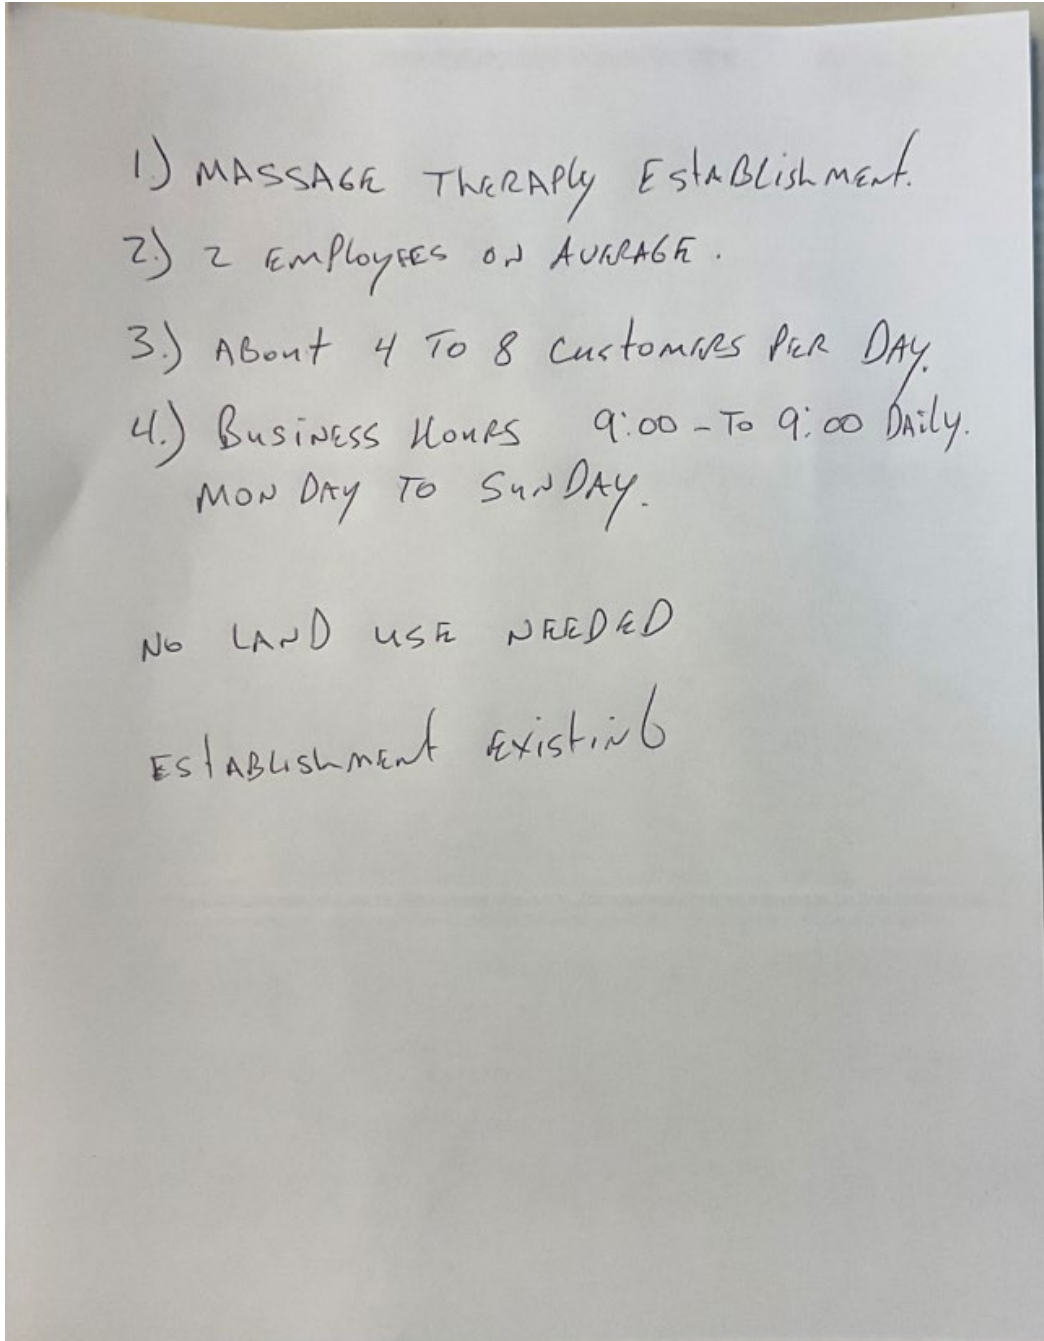 1.) MASSAGE THERAPLY ESTABLISHMENT.
2.) 2 EMPLOYEES ON AVERAGE.
3.) ABOUT 4 TO 8 CUSTOMERS PER DAY.
4.) BUSINESS HOURS 9:00 - TO 9:00 DAILY.
MONDAY TO SUNDAY.
NO LAND USE NEEDED
ESTABLISHMENT EXISTING